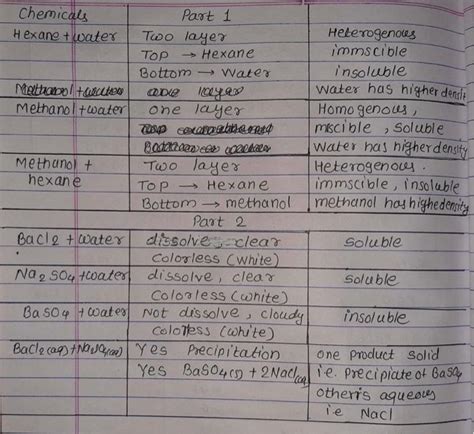 Chemicals Part 1
Hexane + water Two layer Heterogenous
Top → Hexane immscible
Bottom → Water insoluble
Methanol + water one layer Water has higher density
Methanol + water one layer Homogenous,
miscible, soluble
Water has higher density
Methanol + Two layer Heterogenous.
hexane Top → Hexane immscible, insoluble
Bottom → methanol methanol has highedensity
Part 2
BaCl2 + water dissolve, clear soluble
Colorless (white)
Na2SO4 + water dissolve, clear soluble
Colorless (white)
BaSO4 + water Not dissolve, cloudy insoluble
Colorless (white)
Yes Precipitation one product solid
Yes BaSO4(s) + 2NaCl(aq) i.e. Precipiate of BaSO4
other is aqueous
i.e NaCl